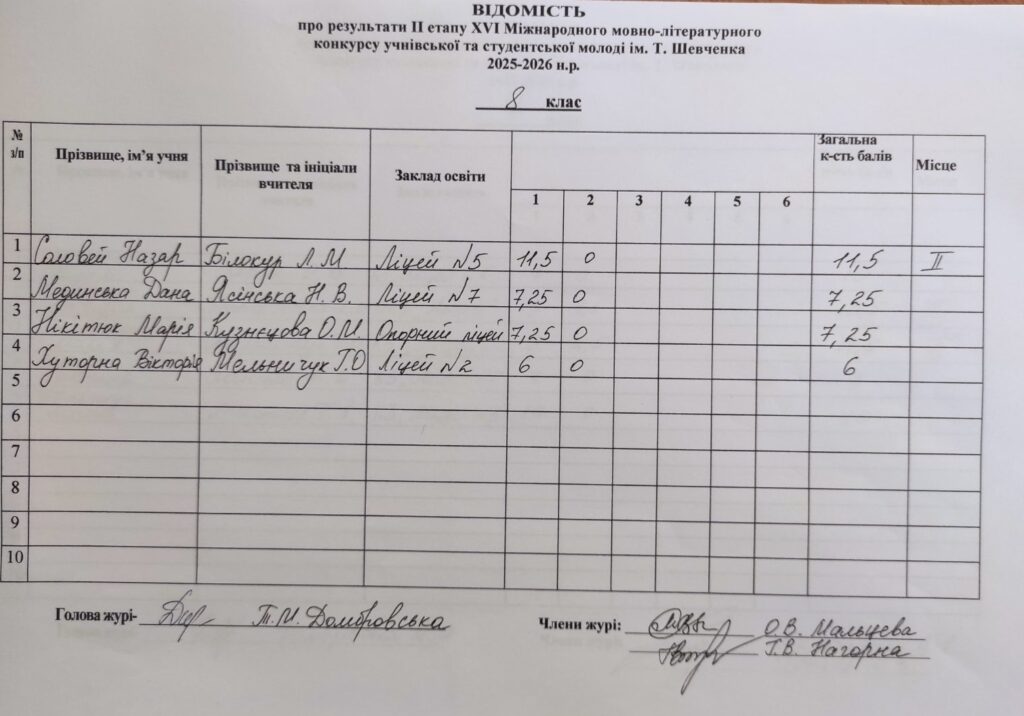 ВІДОМІСТЬ
про результати ІІ етапу XVI Міжнародного мовно-літературного
конкурсу учнівської та студентської молоді ім. Т. Шевченка
2025-2026 н.р.
8 клас
№ з/п Прізвище, ім’я учня Прізвище та ініціали вчителя Заклад освіти 1 2 3 4 5 6 Загальна к-сть балів Місце
1 Соловей Назар Білокур Л.М Ліцей №5 11,5 0 11,5 ІІ
2 Мединська Дана Ясінська Н.В. Ліцей №7 7,25 0 7,25
3 Нікітюк Марія Кузнєцова О.М. Опорний ліцей 7,25 0 7,25
4 Хуторна Вікторія Мельничук Т.О Ліцей №2 6 0 6
5
6
7
8
9
10
Голова журі- Т.М. Домбровська
Члени журі: О.В. Мальцева
Т.В. Нагорна